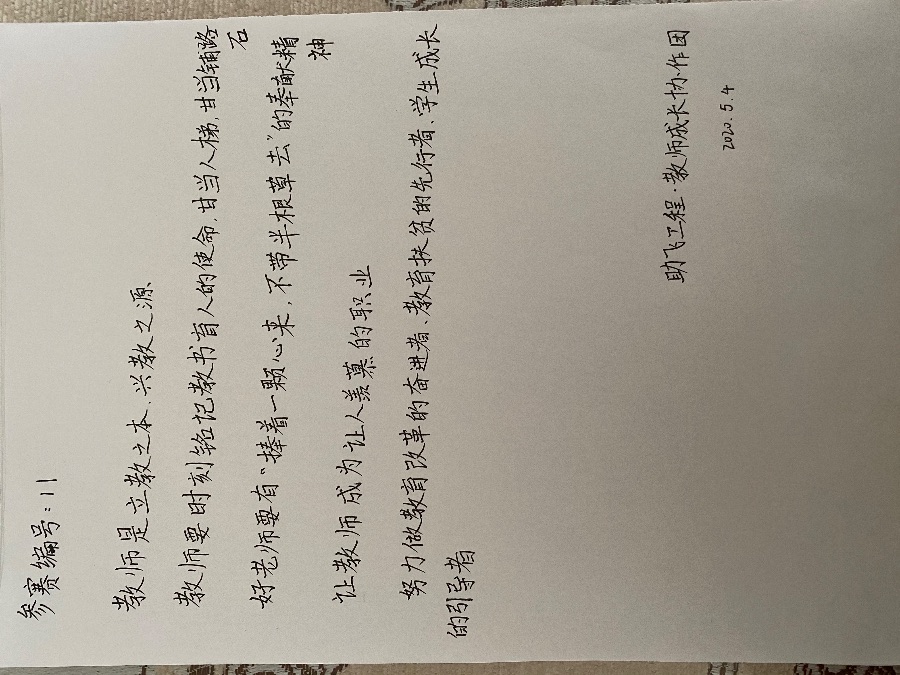 参赛编号:11
教师是立教之本、兴教之源
教师要时刻铭记教书育人的使命,甘当人梯,甘当铺路
石
好老师要有“捧着一颗心来,不带半根草去”的奉献精
神
让教师成为让人羡慕的职业
努力做教育改革的奋进者、教育扶贫的先行者、学生成长
的引导者
助飞工程·教师成长协作团
2020.5.4